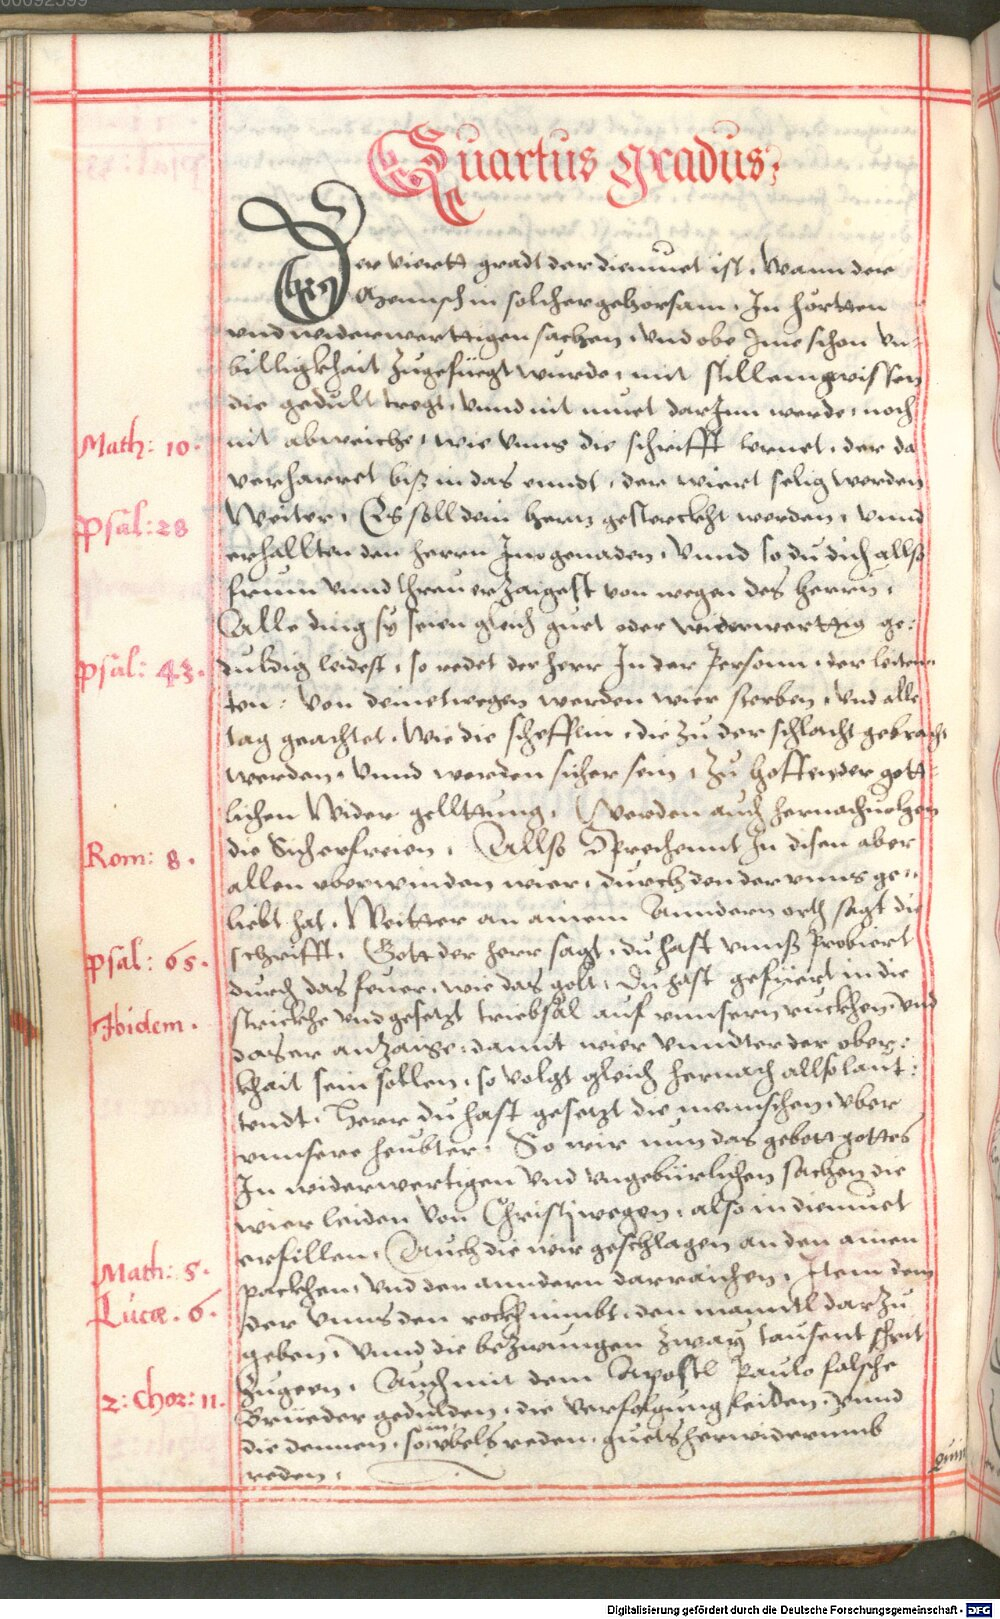 00092599
Quartus gradus:
Der viertt gradt der diemuet ist, Wann der
Mennsch in solcher gehorsam, In hörtten
vnd widerwerttigen sachen, vnd obe Ime schon vn-
billigkhait zugefüegt wurde, mit stillem gwissen
die gedult tregt, vnnd nit muet darInn werde, noch
Math: 10.
nit abweiche, wie vnns die schrifft lernet, der da
verharret bisz in das enndt, der wiert selig werden
Psal: 28
Weiter, Es soll dein hertz gesterckht werden, vnnd
erhallten den herrn Ino genaden, Vnnd so du dich allso
frum vnnd threu erzaigest von wegen des herrn,
Alle ding sÿ seien gleich guet oder widerwerttig ge-
Psal: 43.
duldig leidest, so redet der herr In der Personn, der leiten-
ten: Von deinetwegen werden wier sterben, vnd alle
tag geachtet, Wie die scheflin, die zu der schlacht gebracht
werden, Vnnd werden sicher sein, zu hoffen der gött-
lichen Wider gelltung, Werden auch hernachuolgen
Rom: 8.
die Sich erfreien, Allso Sprechennt In disen aber
allen vberwinden wier, durch den der vnns ge-
liebt hat, Weitter an ainem Anndern orth sagt die
Psal: 65.
schrifft, Gott der herr sagt, du hast vnnsz Probiert
durch das feuer, wie das golt, Du hast gefüert in die
Ibidem.
strickhe vnd gesetzt triebsal auf vnnsern ruckhen, vnd
das er anzaige, damit wier vnndter der ober-
khait sein sollen, so volgt gleich hernach allso laut-
tendt, Herr du hast gesetzt die mennschen, vber
vnnsere heubter. So wir nun das gebott gottes
In widerwertigen vnd vngebürlichen sachen die
wier leiden Von Christj wegen, also in diemuet
erfillen, Auch die wir geschlagen an den ainen
Math: 5.
packhen, vnd den anndern darraichen, Item dem
Lucæ. 6.
der vnns den rockh nimbt, den manntl darzu
geben, Vnnd die bezwungen zwaÿ tausent schrit
2: Chor: 11.
zugeen, Auch mit dem Apostl Paulo falsche
Brüeder gedulden, die verfolgung leiden, vnnd
die dennen, so im vbels reden, guets herwiderumb
reden.
Quin
Digitalisierung gefördert durch die Deutsche Forschungsgemeinschaft - DFG